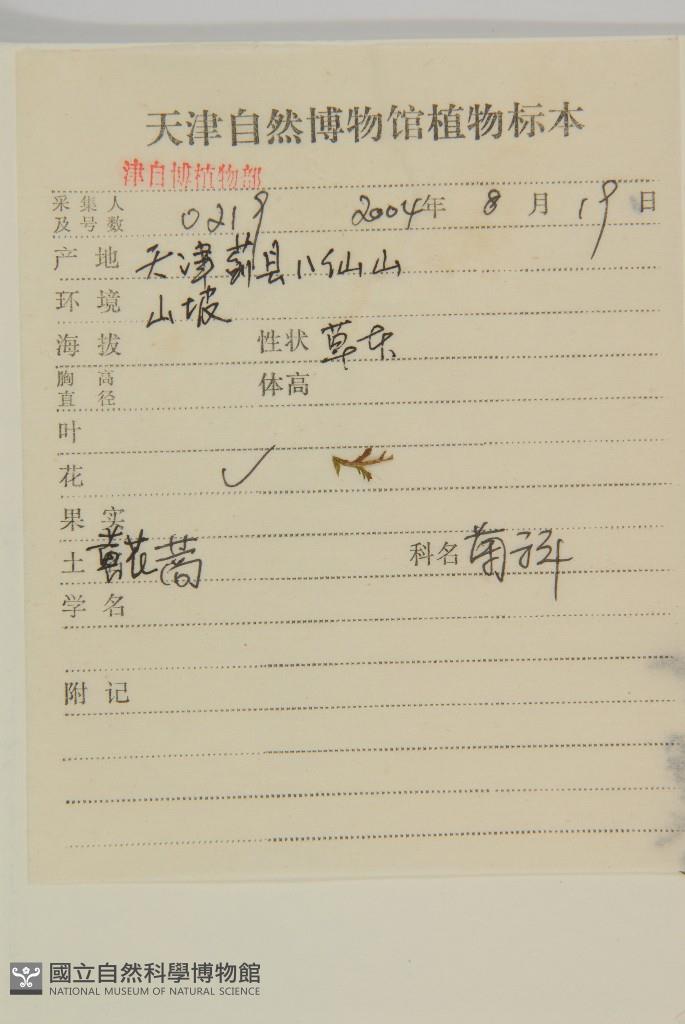 天津自然博物馆植物标本
津自博植物部
采集人及号数 0219 2004年 8月 19日
产地 天津蓟县八仙山
环境 山坡
海拔 性状 草本
胸高直径 体高
叶
花 ✓
果实
土 黄花蒿 科名 菊科
学名
附记
國立自然科學博物館
NATIONAL MUSEUM OF NATURAL SCIENCE